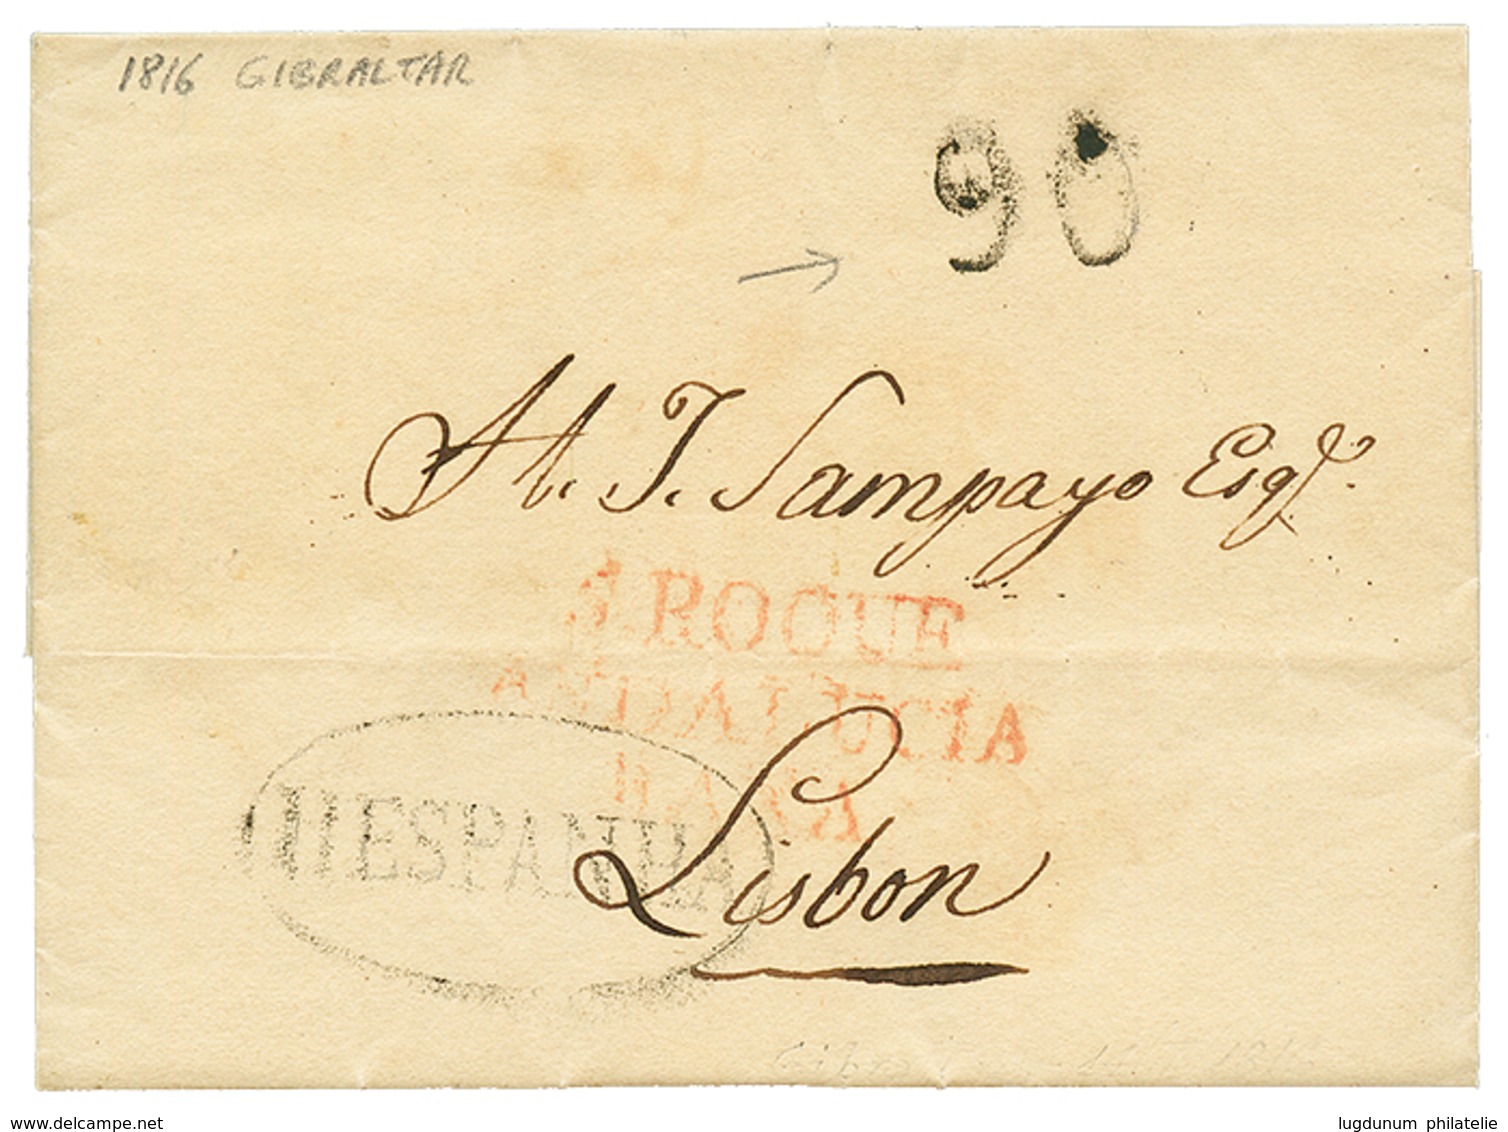 1816 GIBRALTAR
90
A. J. Sampayo Esqr.
S. ROQUE
ANDALUCIA
BAXA
HESPANHA
Lisbon
www.delcampe.net
lugdunum philatelie